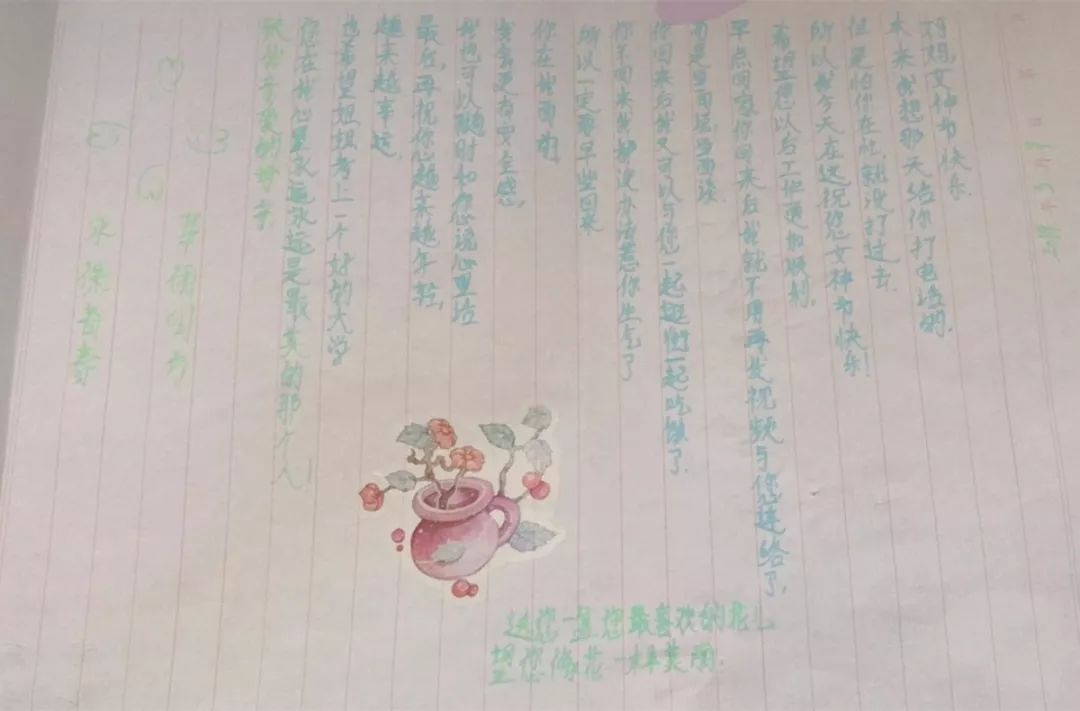 妈妈,女神节快乐.
本来我想那天给你打电话的.
但是怕你在忙,就没打过去.
所以我今天在这祝您女神节快乐!
希望您以后工作更加顺利,
早点回家你回来后我就不用再发视频与您连络了,
而是当面玩,当面谈.
你回来后我又可以与你一起逛街一起吃饭了.
你不回来我都没办法惹你生气了
所以一定要早些回来
你在我面前
我会更有安全感,
我也可以随时和您说心里话
最后,再祝你越来越年轻,
越来越幸运,
也希望姐姐考上一个好的大学
您在我心里永远永远是最美的那个人!
致我亲爱的母亲
永葆青春
送您一盆您最喜欢的花儿
望您像花一样美丽.